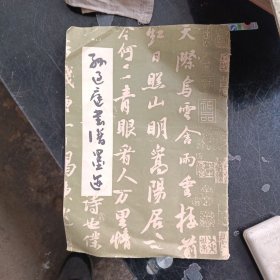 天際烏雲含雨重樓前
紅日照山明嵩陽居士
今何在青眼看人萬里情
孙过庭書譜墨迹
詩也僕